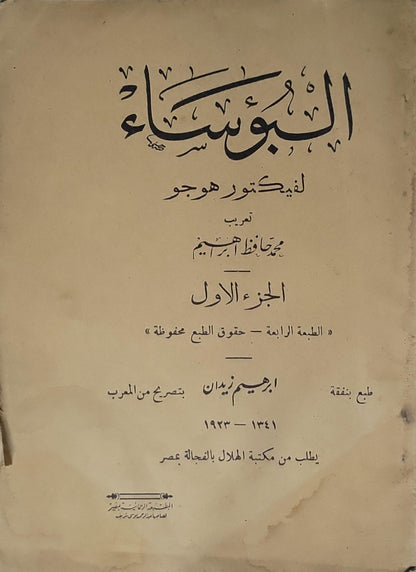 البؤساء
لفيكتور هوجو
تعريب
محمد حافظ ابرهيم
الجزء الاول
« الطبعة الرابعة — حقوق الطبع محفوظة »
طبع بنفقة ابرهيم زيدان بتصريح من المعرب
١٣٤١ — ١٩٢٣
يطلب من مكتبة الهلال بالفجالة بمصر
المطبعة الرحمانية بمصر